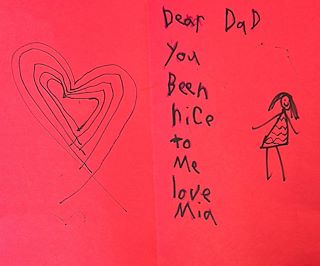 Dear DaD
You
Been
nice
to
Me
love
Mia